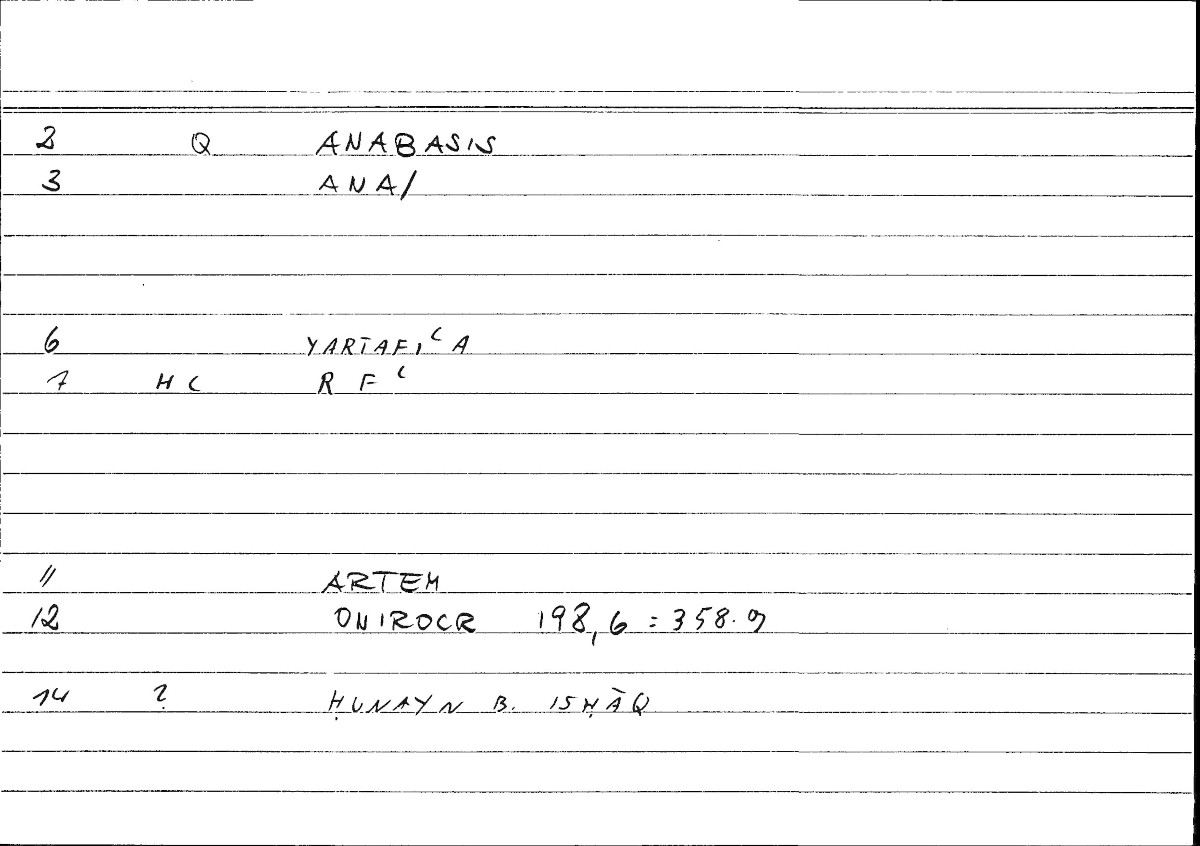 2 Q ANABASIS
3 ANA/
6 YARTAFIʿA
7 HC RFʿ
11 ARTEM
12 ONIROCR 198,6 = 358.9
14 ? ḤUNAYN B. ISḤĀQ